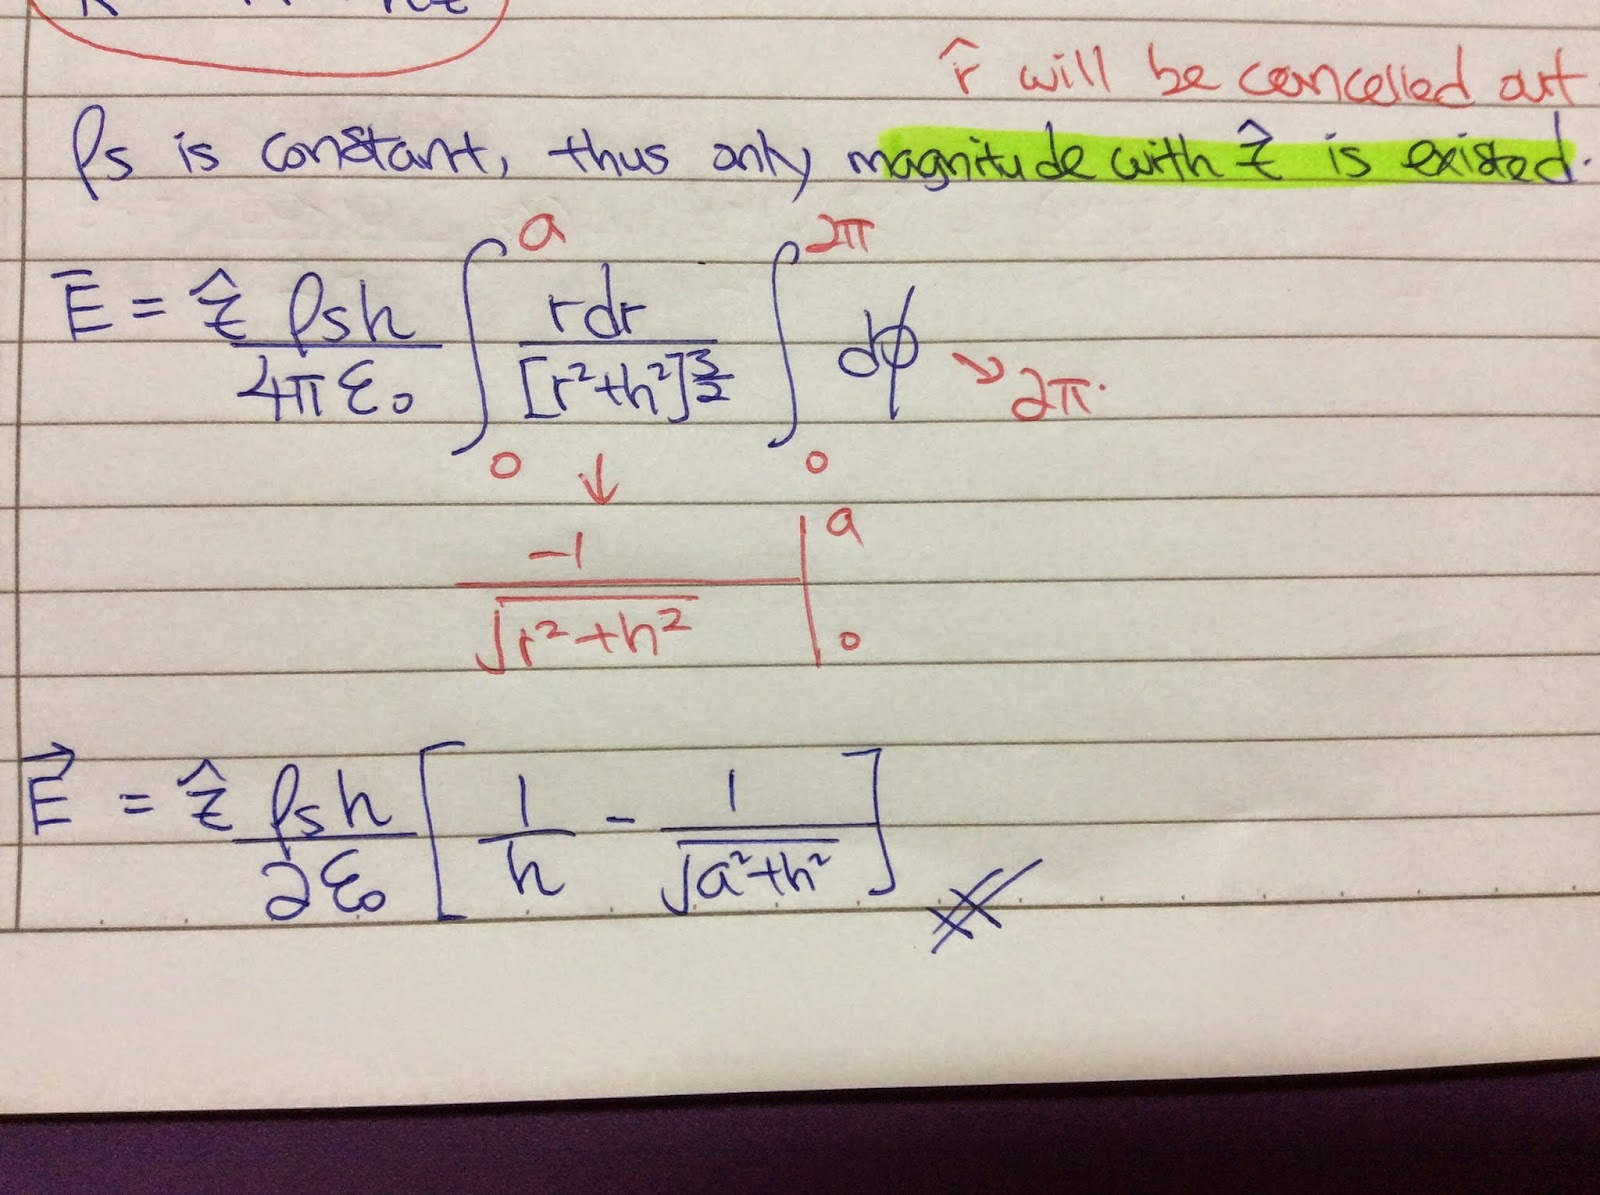 r̂ will be cancelled out
ρs is constant, thus only magnitude with ẑ is existed.
E̅ = ẑ ρsh / 4πε₀ ∫₀ᵃ rdr / [r²+h²]^(3/2) ∫₀^(2π) dϕ ↘ 2π.
↓
-1 / √(r²+h²) |₀ᵃ
E⃗ = ẑ ρsh / 2ε₀ [ 1/h - 1/√(a²+h²) ]